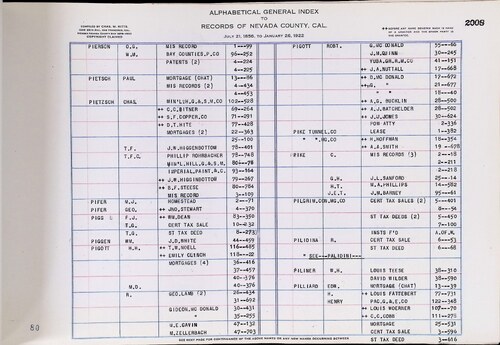 ALPHABETICAL GENERAL INDEX
TO
RECORDS OF NEVADA COUNTY, CAL.
JULY 21, 1856, TO JANUARY 28, 1922
2009
COMPILED BY CHAS. W. KITTS,
COPYRIGHT CLAIMED
PIERSON D.G. MIS RECORD 1---99
W.M. BAY COUNTIES,P CO 96--252
PATENTS (2) 4--224
4--225
PIETSCH PAUL MORTGAGE (CHAT) 13---86
MIS RECORDS (2) 4--434
4--453
PIETZSCH CHAS. MIN'LIH,G.&S.M,CO 102--528
++ C.C.BITNER 69--264
++ S.F.COPPER,CO 71--291
++ D.T.HITE 77--428
MORTGAGES (2) 22--363
25--100
T.F. J.W.HIGGENBOTTOM 78--401
T.F.C. PHILLIP ROHRBACHER 78--748
MIN'L HILL,G.&S.M 80---78
IMPERIAL,PAINT,&C. 93--164
++ J.W.HIGGINBOTTOM 79--267
++ B.F.STEESE 80--784
MIS RECORD 3--109
PIFER M.J. HOMESTEAD 2---71
PIFER GEO. ++ JNO.STEWART 4--370
PIGG F.J. ++ WM.DEAN 83--350
T.G. CERT TAX SALE 10--232
T.G. ST TAX DEED 8--273
PIGGEN WM. J.D.WHITE 44--459
PIGOTT H.H. ++ T.W.SOELL 116--485
++ EMILY COENCH 118---22
MORTGAGES (4) 36--416
37--457
40--376
M.D. 40--376
R. GEO.LAMB (2) 26--434
31--692
GIDEON,MC DONALD 30--431
" 35--255
H.E.GAVIN 47--132
M.ZELLERBACH 47--793
PIGOTT ROBT. G.MC DONALD 35---66
J.M.QUINN 30--245
YUBA,GR,R.M,CO 41--151
++ J.A.NUTTALL 17--668
++ D.MC DONALD 17--672
++ G. " 21--677
++ " " 18---40
++ A.G.BUCKLIN 28--500
++ A.J.BATCHELDER 28--502
++ J.J.JONES 30--624
POW ATTY 2--336
PIKE TUNNEL,CO LEASE 1--382
" ",HU,CO ++ H.HOFFMAN 18--354
++ A.A.SMITH 19--678
PIKE C. MIS RECORDS (3) 2---18
2--211
2--218
G.H. J.L.SANFORD 25---14
H.T. W.A.PHILLIPS 14--582
J.E.T. J.W.BARNEY 95---61
PILGRIM,CON,MG,CO CERT TAX SALES (2) 5--401
8---54
ST TAX DEEDS (2) 5--450
7--100
INSTS F'D A.OF.M.
PILIDINA R. CERT TAX SALE 6---53
* SEE---PALIDINI--- ST TAX DEED 6---68
PILINER W.H. LOUIS TEESE 38--310
DAVID WILDER 38--590
PILLIARD EDW. MORTGAGE (CHAT) 13---39
H. ++ LOUIS FATTEBAY 77--731
HENRY PAC,G.&E,CO 122--348
++ LOUIS WOERNER 107---70
++ C.C.CONE 111--275
MORTGAGE 25--531
CERT TAX SALE 3--534
ST TAX DEED 3--616
80